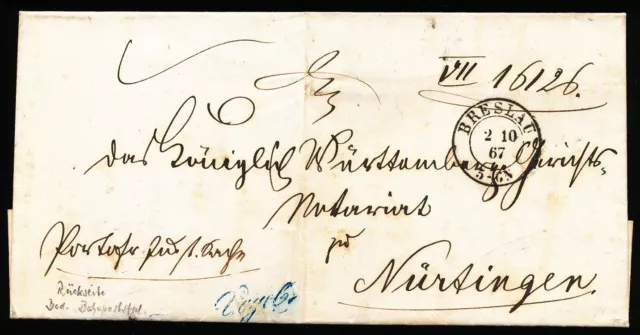 VII 16126.
BRESLAU
2 10
67
das Königlich Württemberg. Gerichts-
Notariat
zu
Nürtingen.
Portofr. Just. Sache
Rückseite
Bad. Bahnpoststpl.